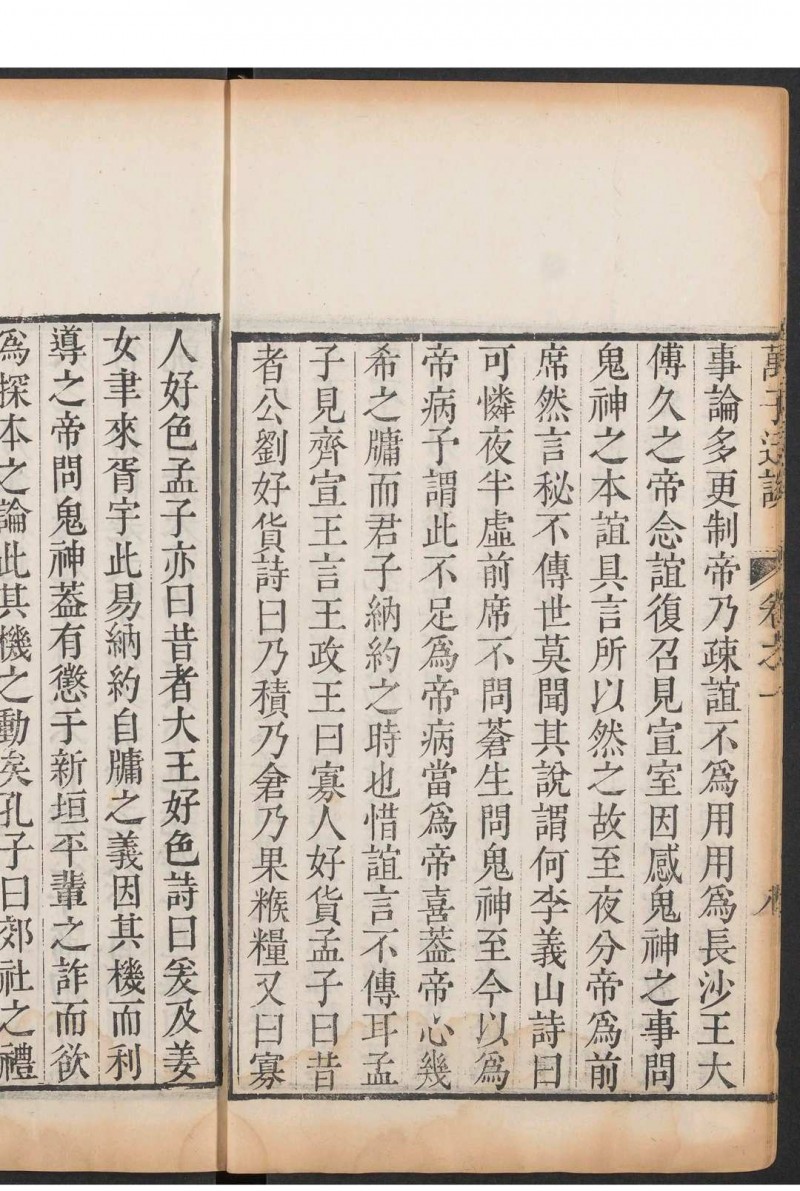 萬子迂談 卷之一
事論多更制帝乃疎誼不爲用用爲長沙王大
傅久之帝念誼復召見宣室因感鬼神之事問
鬼神之本誼具言所以然之故至夜分帝爲前
席然言秘不傳世莫聞其說謂何李義山詩曰
可憐夜半虛前席不問蒼生問鬼神至今以爲
帝病予謂此不足爲帝病當爲帝喜葢帝心幾
希之牗而君子納約之時也惜誼言不傳耳孟
子見齊宣王言王政王曰寡人好貨孟子曰昔
者公劉好貨詩曰乃積乃倉乃果糇糧又曰寡
人好色孟子亦曰昔者大王好色詩曰爰及姜
女聿來胥宇此易納約自牗之義因其機而利
導之帝問鬼神葢有懲于新垣平輩之詐而欲
爲探本之論此其機之動矣孔子曰郊社之禮